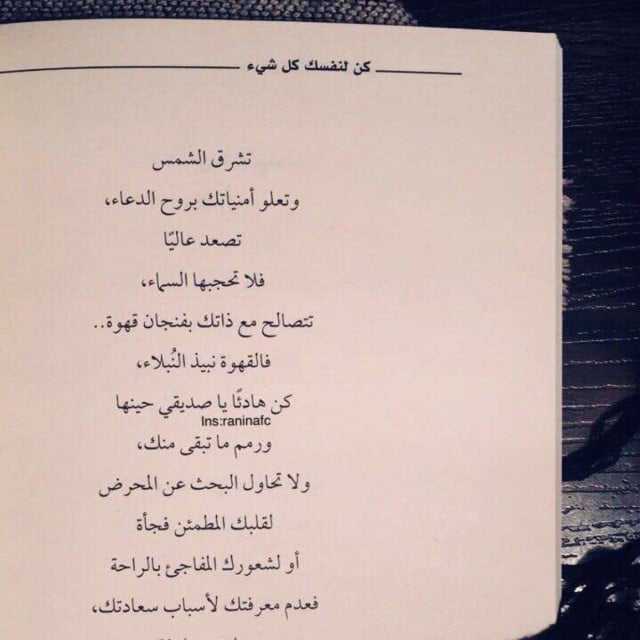 كن لنفسك كل شيء
تشرق الشمس
وتعلو أمنياتك بروح الدعاء،
تصعد عاليًا
فلا تحجبها السماء،
تتصالح مع ذاتك بفنجان قهوة..
فالقهوة نبيذ النُبلاء،
كن هادئًا يا صديقي حينها
Ins:raninafc
ورمم ما تبقى منك،
ولا تحاول البحث عن المحرض
لقلبك المطمئن فجأة
أو لشعورك المفاجئ بالراحة
فعدم معرفتك لأسباب سعادتك،